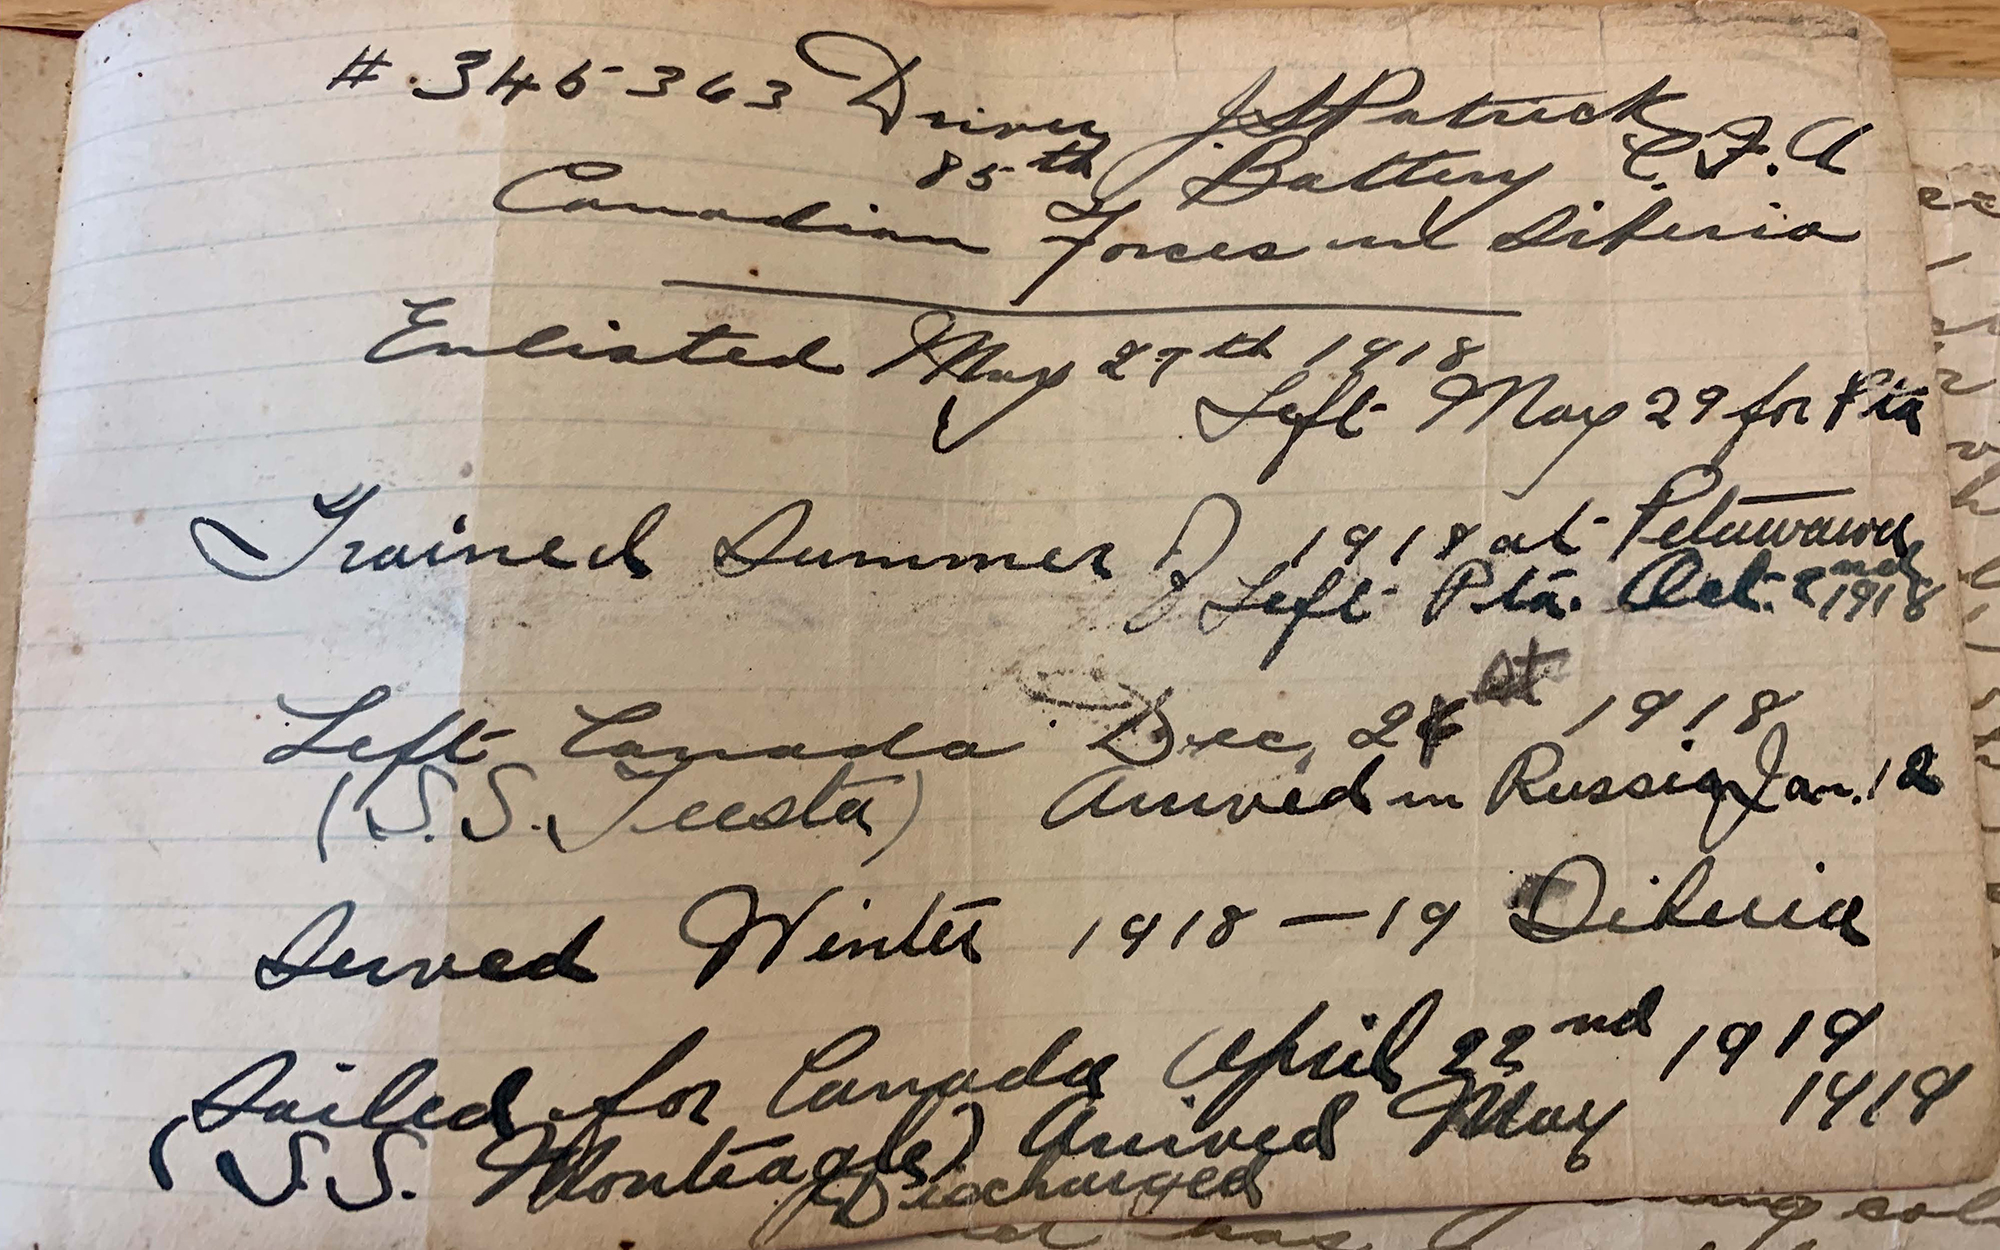 # 345363 Driver J. H Patrick
85th Battery C.F.A
Canadian Forces in Siberia
Enlisted May 27th 1918
Left May 29 for Pta
Trained Summer of 1918 at Petawawa
Left Pta. Oct. 2nd 1918
Left Canada Dec, 26 1918
(S.S. Teesta) Arrived in Russia Jan. 12
Served Winter 1918 — 19 Siberia
Sailed for Canada April 22nd 1919
(S.S. Monteagle) Arrived May 1919
Discharged